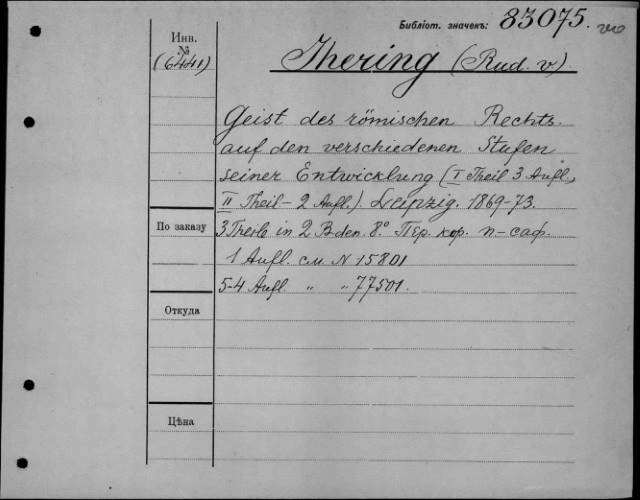 Библіот. значекъ: 83075.
Инв. №
(6441)
Ihering (Rud. v)
Geist des römischen Rechts
auf den verschiedenen Stufen
seiner Entwicklung (I Theil 3 Aufl.,
II Theil - 2 Aufl.). Leipzig. 1869-73.
По заказу
3 Theile in 2 Bden. 8° Пер. кор. п-саф.
1 Aufl. см N 15801
5-4 Aufl. " " 77501.
Откуда
Цѣна